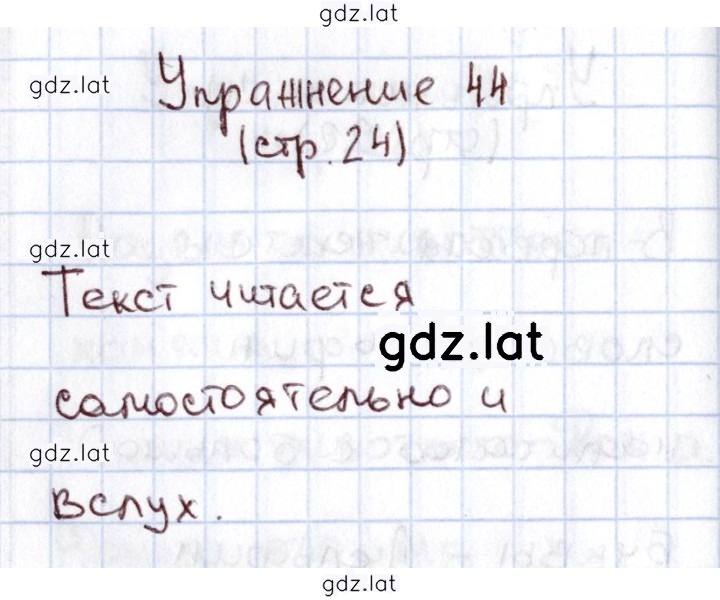 gdz.lat
gdz.lat
Упражнение 44
(стр. 24)
gdz.lat
Текст читается
gdz.lat
самостоятельно и
gdz.lat
вслух.
gdz.lat